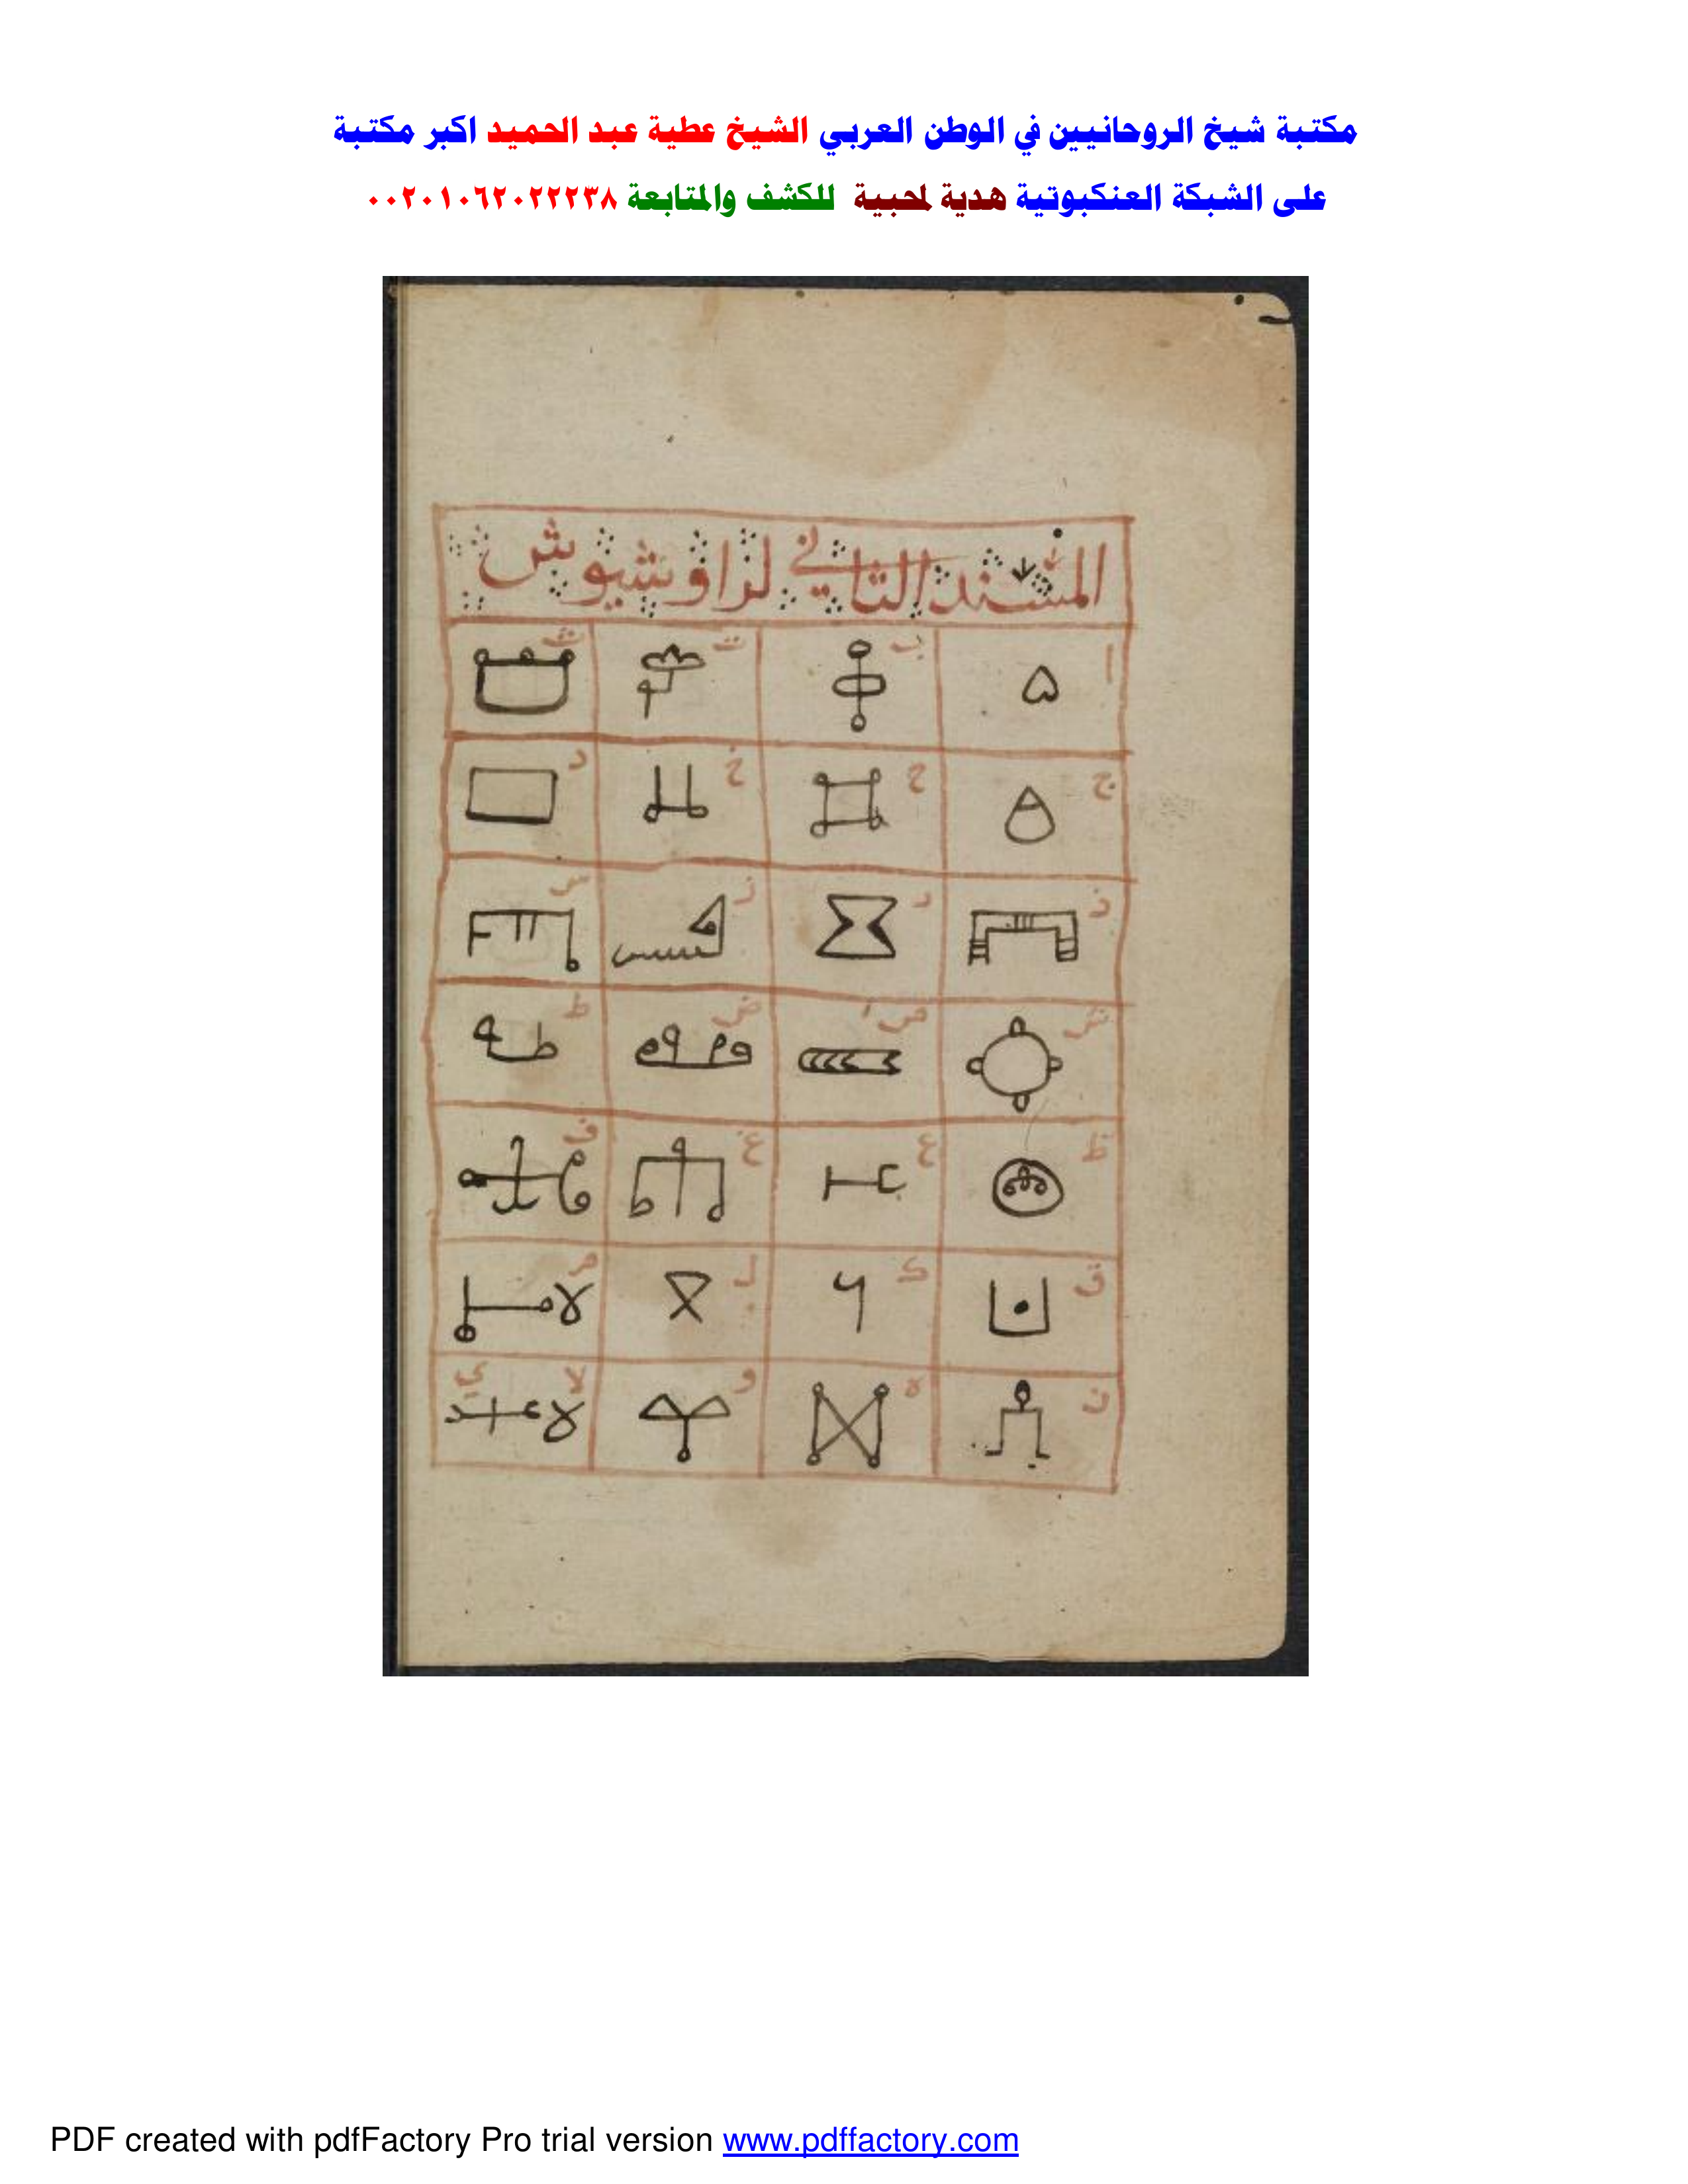 مكتبة شيخ الروحانيين في الوطن العربي الشيخ عطية عبد الحميد اكبر مكتبة
على الشبكة العنكبوتية هدية لمحبية للكشف والمتابعة ٠٠٢٠١٠٦٢٠٢٢٢٣٨
المسند الثاني
ا ب ت ث
ج ح خ د
ذ ر ز س
ش ص ض ط
ظ ع غ ف
ق ك ل م
ن ه و لا ي
PDF created with pdfFactory Pro trial version www.pdffactory.com